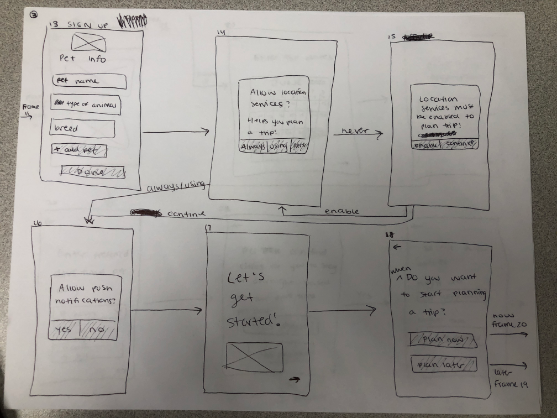 3
13 SIGN UP
Pet Info
pet name
type of animal
breed
+ add pet
Done
from
11
14
Allow location
services?
Helps you plan
a trip!
Always using never
never
15
Location
services must
be enabled to
plan trip!
enable continue
always/using
continue
enable
16
Allow push
notifications?
yes no
17
Let's
get
started!
18
when
Do you want
to start planning
a trip?
plan now
plan later
now
frame 20
later
frame 19